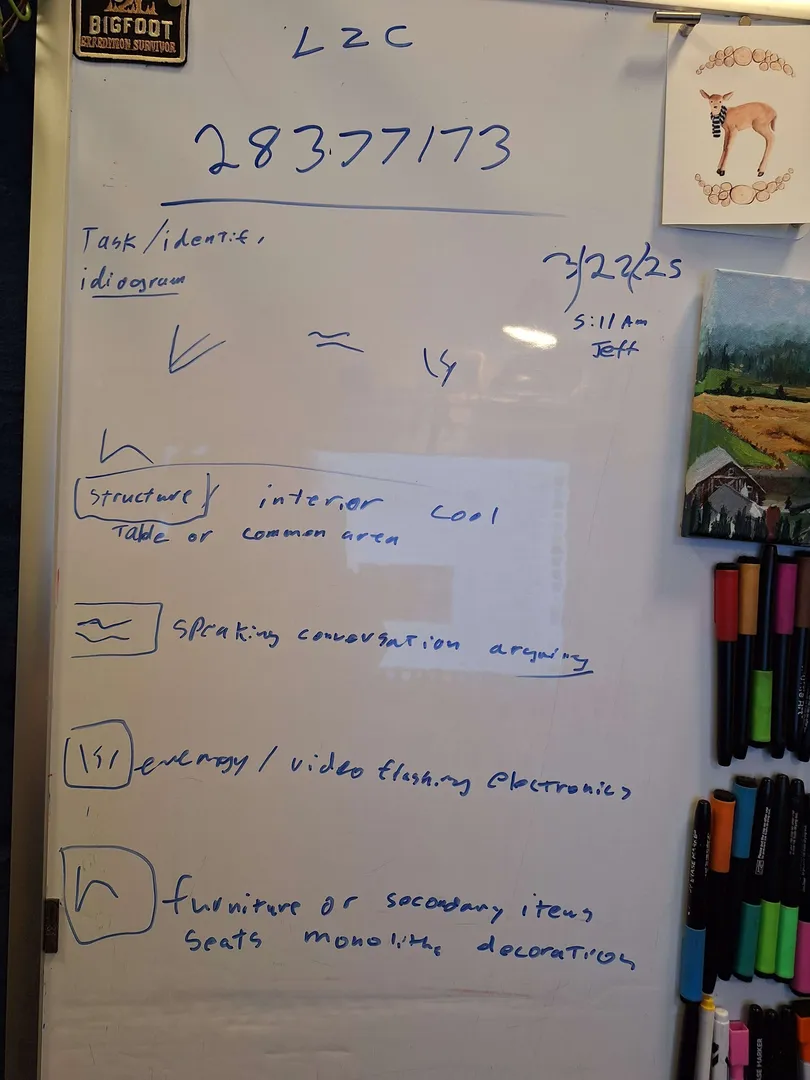 BIGFOOT
EXPEDITION SURVIVOR
LZC
28377173
Task/identif,
idiogram
3/22/25
5:11 Am
Jeff
structure / interior cool
Table or common area
speaking conversation arguing
energy / video flashing electronics
furniture or secondary items
seats monolithc decoration